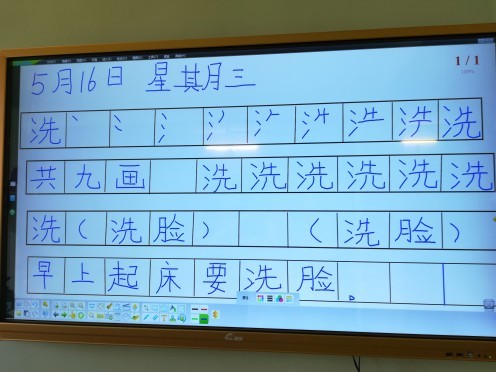 1 / 1
5月16日 星期三
洗 丶 冫 氵 洗
共九画 洗洗洗洗洗洗
洗(洗脸) (洗脸)
早上起床要洗脸。